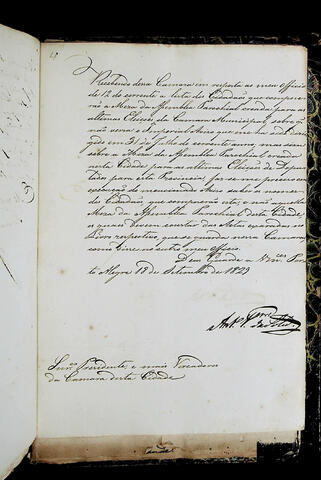 Recebendo dessa Camara em resposta ao meu officio
de 12 do corrente a lista dos Cidadãos que compuze-
rão a Meza da Assemblea Parochial creada para as
ultimas Eleiçoes da Camara Municipal, sobre q.
não versa o Imperial Aviso que me ha sido diri-
gido em 31 de Julho do corrente anno, mas sim
sobre a Meza da Assemblea Parochial creada
nesta Cidade para as ultimas Eleiçoes de Depu-
tados para esta Provincia, faz-se-me preciso em
execução do mencionado Aviso saber os nomes
dos Cidadãos que compuzerão esta, e não aquella
Meza da Assemblea Parochial desta Cidade,
os quaes devem constar das Actas exaradas no
Livro respectivo, que se guarda nessa Camara,
como disse no outro meu officio.
Deos Guarde a Vm.ces Por-
to Alegre 18 de Setembro de 1829
Snr.es Presidente, e mais Vereadores
da Camara desta Cidade